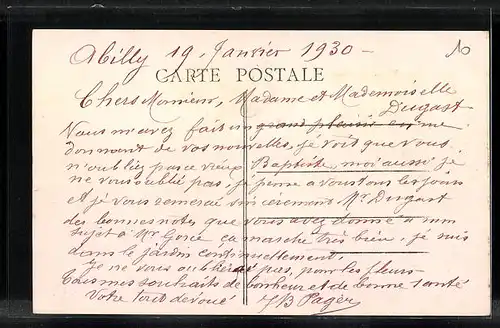 Abilly 19 Janvier 1930 -
10
CARTE POSTALE
Chers Monsieur, Madame et Mademoiselle
Dugast
Vous m'avez fait un grand plaisir en me
donnant de vos nouvelles, je vois que vous
n'oubliez pas ce vieux Baptiste, moi aussi je
ne vous oublie pas, je pense a vous tous les jours
et je vous remercie sincerement Mr Dugast
des bonnes notes que vous avez donné a mon
sujet à Mr ça marche très bien, je suis
dans le jardin continuellement,
Je ne vous oublierai pas, pour les fleurs -
Tous mes souhaits de bonheur et de bonne santé
Votre tout dévoué JB